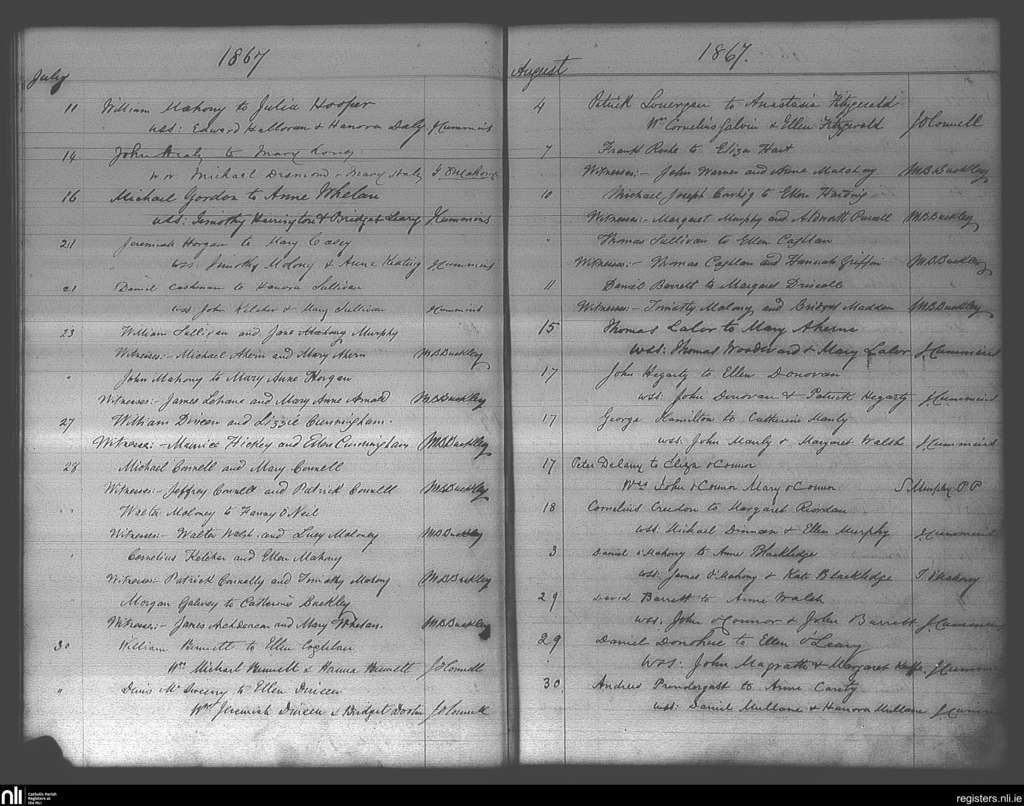 1867
July
11 William Mahony to Julia Hooper
wss: Edward Halloran & Hanora Daly J Cummins
14 John Healy to Mary Long
Michael Desmond & Mary Healy
16 Michael Gordon to Anne Whelan
wss: Timothy Harrington & Bridget Leary J Cummins
21 Jeremiah Horgan to Mary Casey
wss: Timothy Molony & Anne Keating J Cummins
21 Daniel Cashman to Hanora Sullivan
wss John Keleher & Mary Sullivan J Cummins
23 William Sullivan and Jane Murphy
Witnesses:- Michael Ahern and Mary Ahern M.B. Buckley
" John Mahony to Mary Anne Horgan
Witnesses:- James Lehane and Mary Anne Arnold M.B. Buckley
27 William Dineen and Lizzie Cunningham.
Witnesses:- Maurice Hickey and Ellen Cunningham M.B. Buckley
28 Michael Connell and Mary Connell
Witnesses:- Jeffrey Connell and Patrick Connell M.B. Buckley
" Walter Moloney to Fanny O'Neil
Witnesses:- Walter Walsh and Lucy Moloney M.B. Buckley
" Cornelius Keleher and Ellen Mahony
Witnesses:- Patrick Connelly and Timothy Mahony M.B. Buckley
" Morgan Galwey to Catherine Buckley
Witnesses:- James Archdeacon and Mary Whelan. M.B. Buckley
30 William Hennett to Ellen Coghlan
Wss Michael Hennett & Hanna Hennett J O'Connell
" Denis McSweeny to Ellen Dineen
Wss Jeremiah Dineen & Bridget J O'Connell
1867.
August
4 Patrick Lonergan to Anastasia Fitzgerald
Wss Cornelius Galvin & Ellen Fitzgerald J O'Connell
7 Frank to Eliza Hart
Witnesses:- John Warner and Anne M.B. Buckley
10 Michael Joseph to Ellen Harding
Witnesses:- Margaret Murphy and Aldworth Purcell M.B. Buckley
" Thomas Sullivan to Ellen Caghlan
Witnesses:- Thomas Caghlan and Hannah Griffin M.B. Buckley
11 Daniel Barrett to Margaret Driscoll
Witnesses:- Timothy Molony and Bridget Madden M.B. Buckley
15 Thomas Lalor to Mary Aherne
wss: Thomas Woodward & Mary Lalor J. Cummins
17 John Hegarty to Ellen Donovan
wss. John Donovan & Patrick Hegarty J. Cummins
17 George Hamilton to Catherine Manly
wss. John Manly & Margaret Walsh J. Cummins
17 Peter Delany to Eliza O'Connor
Wss John O'Connor Mary O'Connor S Murphy P.P
18 Cornelius Creedon to Margaret Riordan
wss. Michael Dinneen & Ellen Murphy J Cummins
3 Daniel O'Mahony to Anne Blackledge
wss. James O'Mahony & Kate Blackledge T. O'Mahony
29 David Barrett to Anne Walsh
wss. John O'Connor & John Barrett J. Cummins
29 Daniel Donohue to Ellen O'Leary
wss: John Magrath & Margaret J Cummins
30 Andrew Prendergast to Anne Carty
wss: Daniel Mullane & Hanora Mullane J. Cummins
nli Catholic Parish
Registers at
the NLI
registers.nli.ie